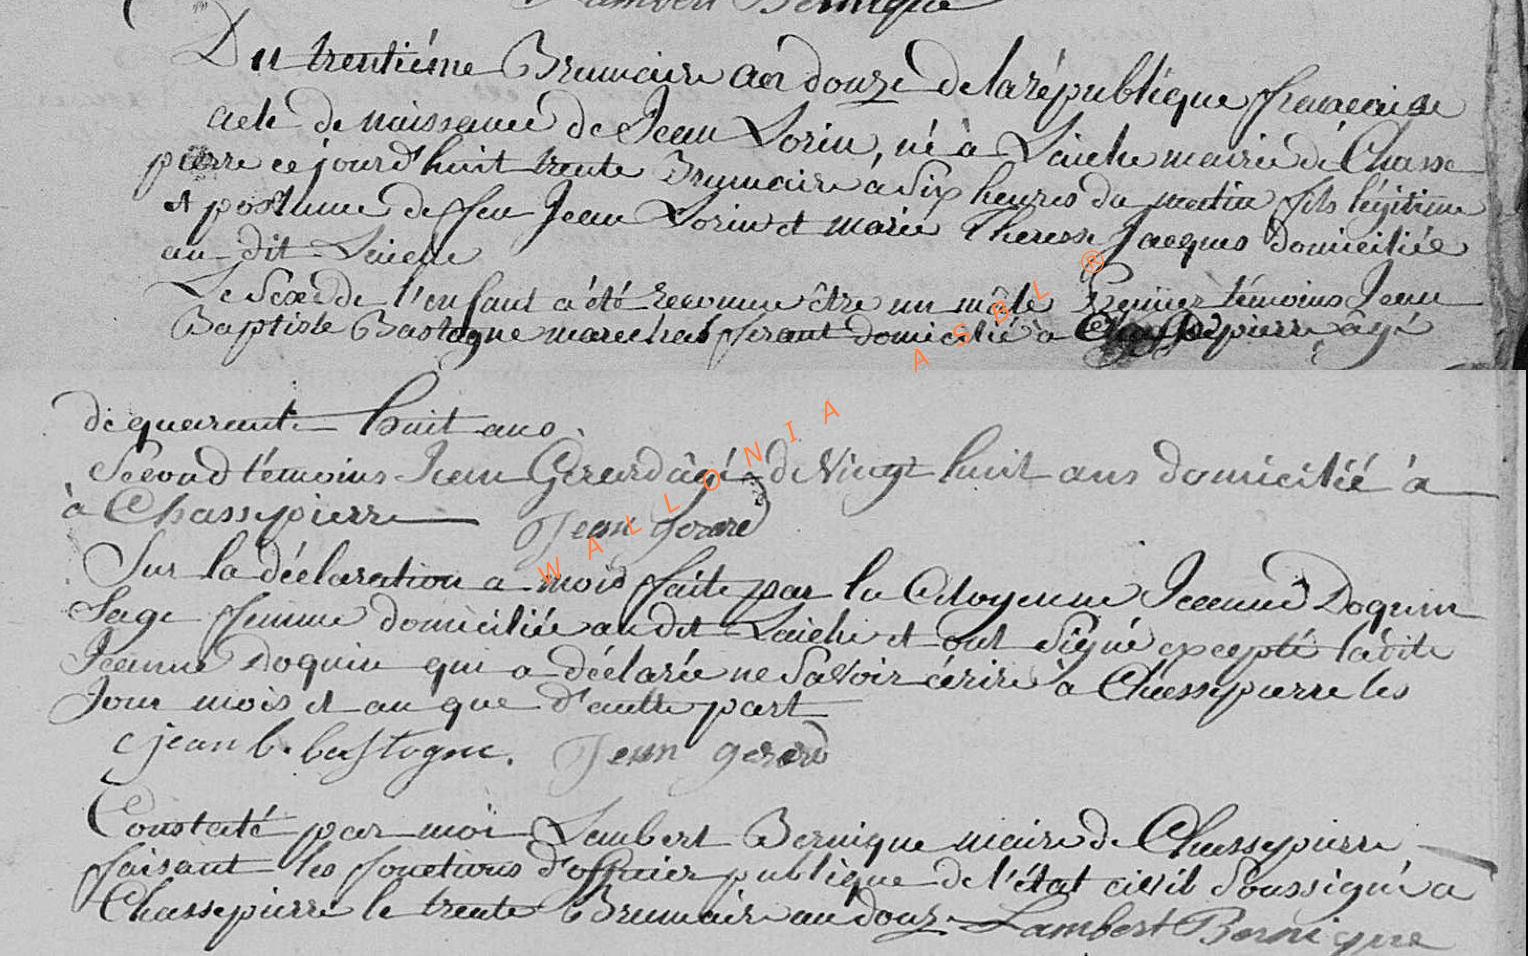 Lambert Bernique
Du trentiéme Brumaire an douze de la république francaise
acte de naissance de Jean Lorin, né à Laiche mairie de Chasse
pierre ce jourd'huit trente Brumaire a six heures du matin fils légitime
et postume de feu Jean Lorin et marie Therese Jacques domiciliée
au dit Laiche
Le sexe de l'enfant a été reconnu être un mâle Premier témoins Jean
Baptiste Bastogne marechal ferant domicilié à Chassepierre âgé
de quarante huit ans.
Second témoins Jean Gerard âgé de Vingt huit ans domicilié à
à Chassepierre Jean gerard
Sur la déclaration a mois faite par la Citoyenne Jeanne Doquin
Sage femme domiciliée au dit Laiche et ont Signé excepté ladite
Jeanne Doquin qui a déclarée ne Savoir écrire à Chassepierre les
Jour mois et an que d'autre part
jean b. bastogne. Jean gerard
Constaté par moi Lambert Bernique maire de Chassepierre
faisant les fonctions d'officier publique de l'état civil Soussigné a
Chassepierre le trente Brumaire an douz. Lambert Bernique
WALLONIA ASBL ®